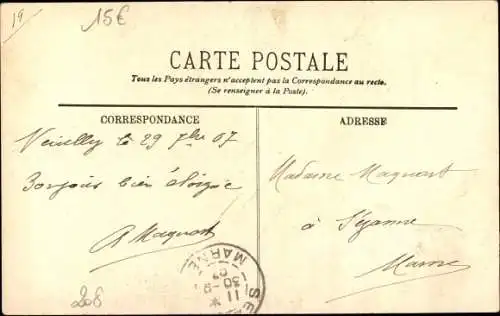 19
15€
CARTE POSTALE
Tous les Pays étrangers n'acceptent pas la Correspondance au recto.
(Se renseigner à la Poste).
CORRESPONDANCE
ADRESSE
le 29 7bre 07
Bonjour bien
A Maquart
Madame Maquart
à Sézanne
Marne
MARNE
11
30-9
07
208